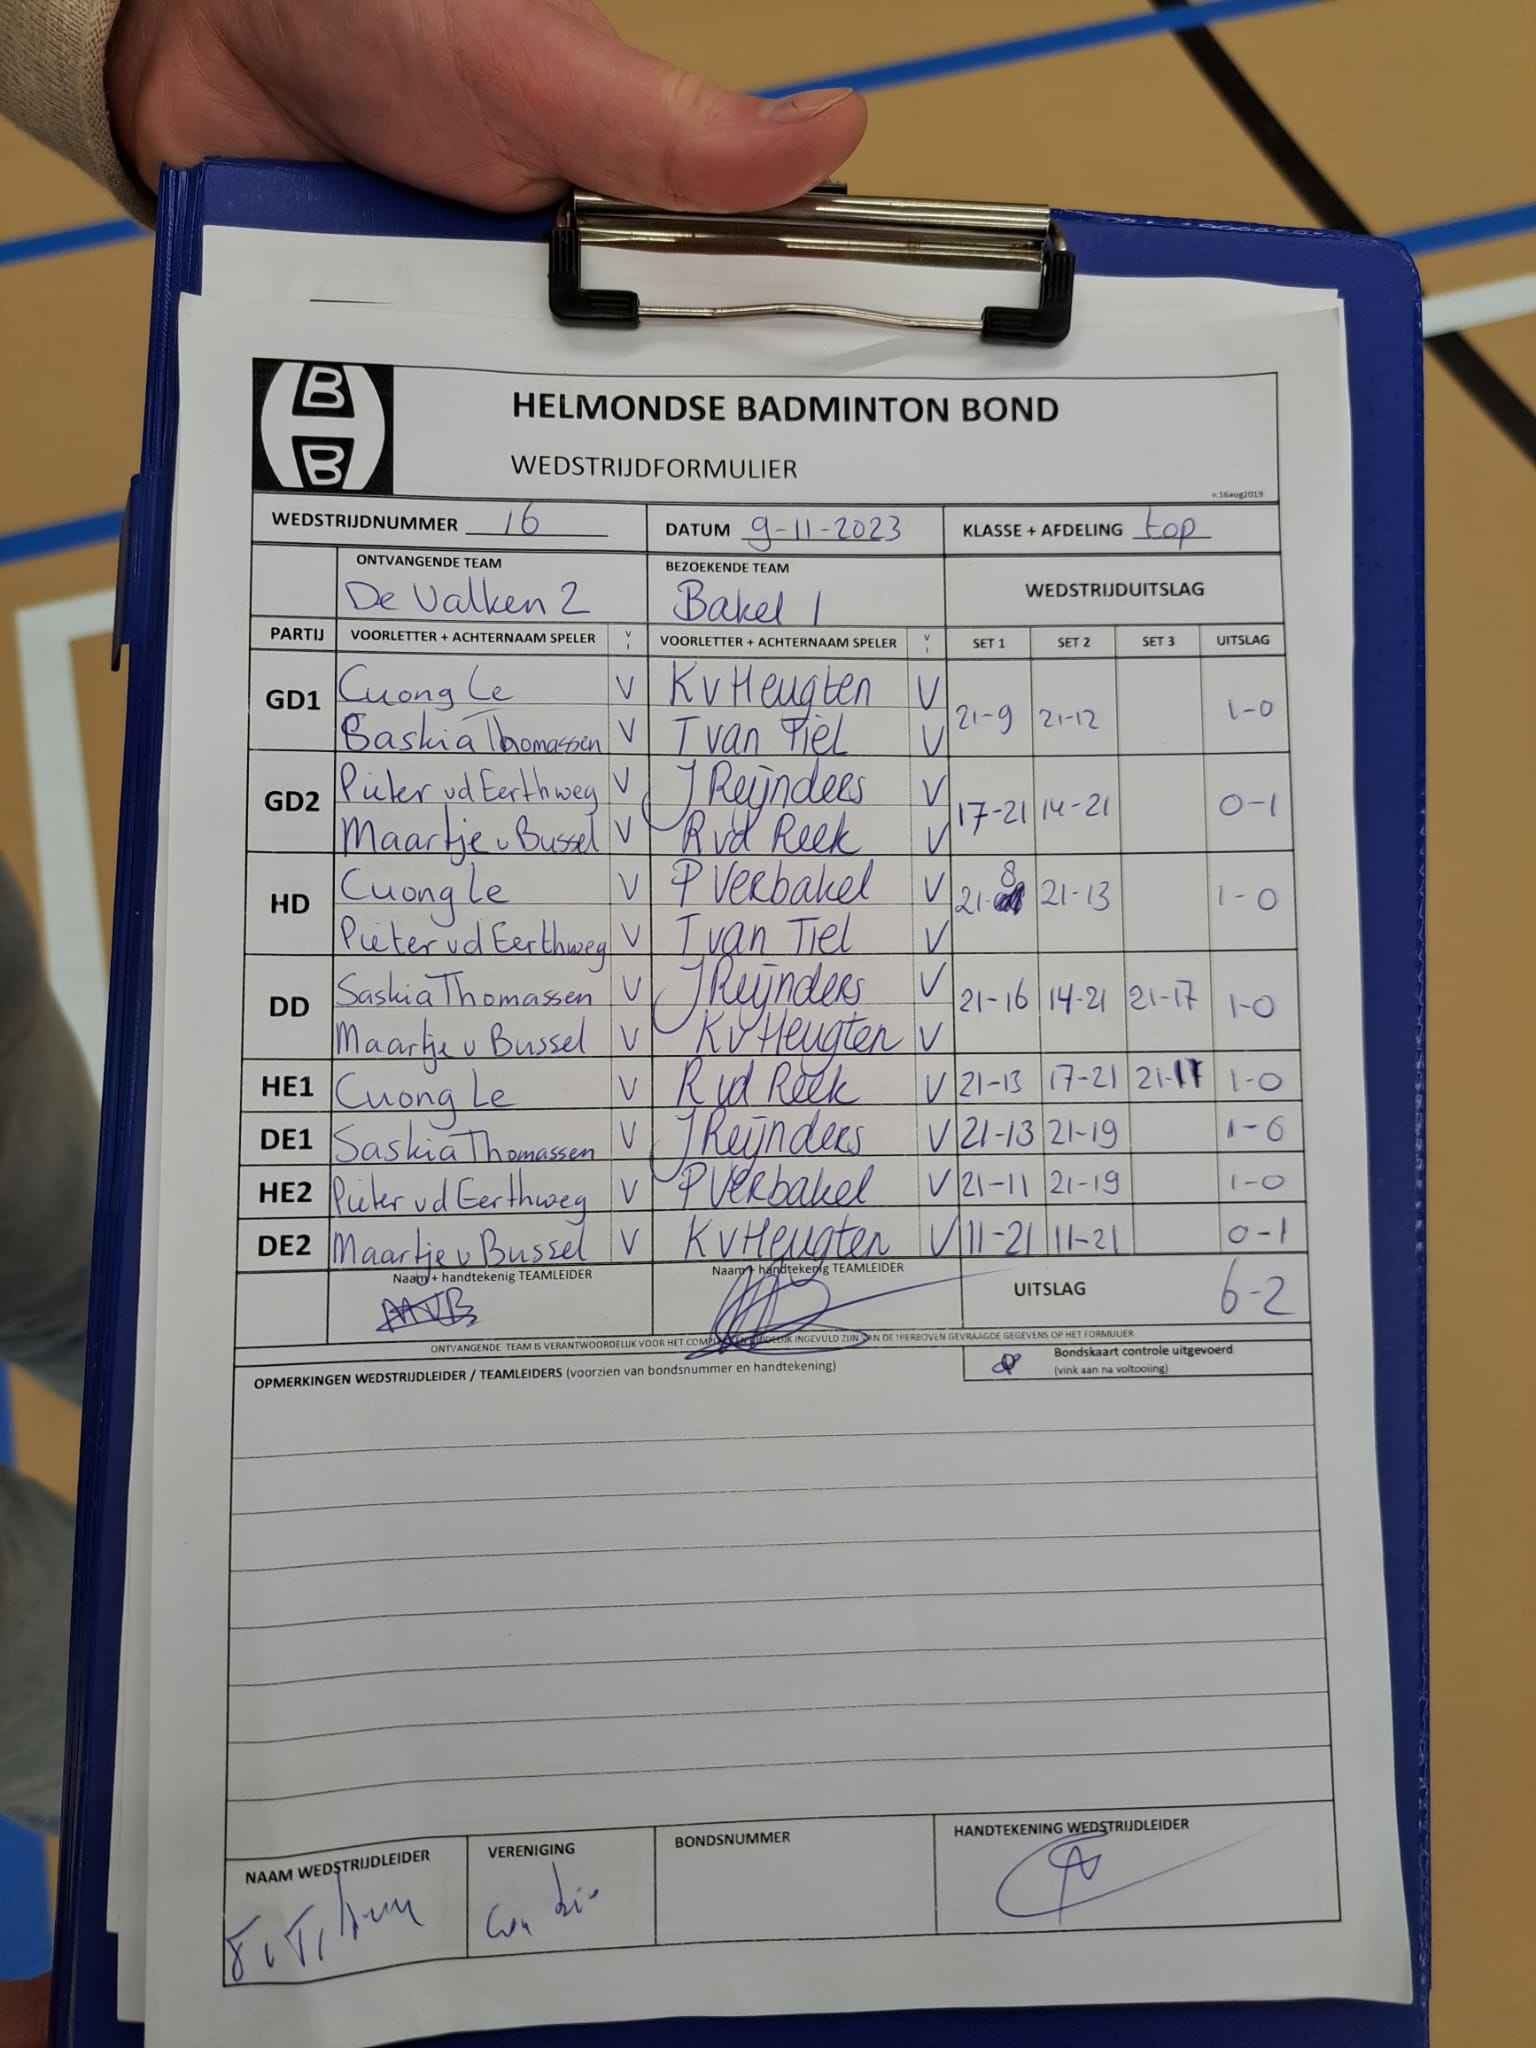 B
B
HELMONDSE BADMINTON BOND
WEDSTRIJDFORMULIER
v.16aug2019
WEDSTRIJDNUMMER 16 DATUM 9-11-2023 KLASSE + AFDELING top
ONTVANGENDE TEAM BEZOEKENDE TEAM WEDSTRIJDUITSLAG
De Valken 2 Bakel 1
PARTIJ VOORLETTER + ACHTERNAAM SPELER V VOORLETTER + ACHTERNAAM SPELER V SET 1 SET 2 SET 3 UITSLAG
GD1 Cuong Le V K v Heugten V 21-9 21-12 1-0
Saskia Thomassen V T van Tiel V
GD2 Pieter vd Eerthweg V J Reijnders V 17-21 14-21 0-1
Maartje v Bussel V R vd Reek V
HD Cuong Le V P Verbakel V 21-8 21-13 1-0
Pieter vd Eerthweg V T van Tiel V
DD Saskia Thomassen V J Reijnders V 21-16 14-21 21-17 1-0
Maartje v Bussel V K v Heugten V
HE1 Cuong Le V R vd Reek V 21-13 17-21 21-17 1-0
DE1 Saskia Thomassen V J Reijnders V 21-13 21-19 1-0
HE2 Pieter vd Eerthweg V P Verbakel V 21-11 21-19 1-0
DE2 Maartje v Bussel V K v Heugten V 11-21 11-21 0-1
Naam + handtekenig TEAMLEIDER Naam + handtekenig TEAMLEIDER UITSLAG 6-2
MVB
ONTVANGENDE TEAM IS VERANTWOORDELIJK VOOR HET INGEVULD ZIJN VAN DE HIERBOVEN GEVRAAGDE GEGEVENS OP HET FORMULIER
Bondskaart controle uitgevoerd
(vink aan na voltooiing)
OPMERKINGEN WEDSTRIJDLEIDER / TEAMLEIDERS (voorzien van bondsnummer en handtekening)
NAAM WEDSTRIJDLEIDER VERENIGING BONDSNUMMER HANDTEKENING WEDSTRIJDLEIDER